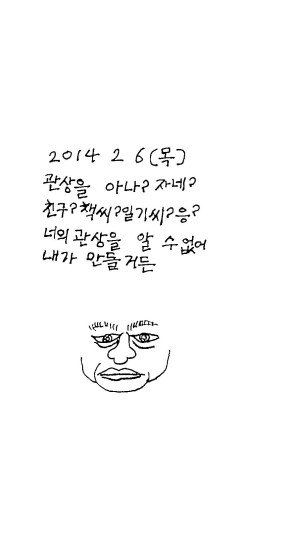 2014 2 6(목)
관상을 아나? 자네?
친구? 책씨? 일기씨? 응?
너의 관상을 알 수 없어
내가 만들거든